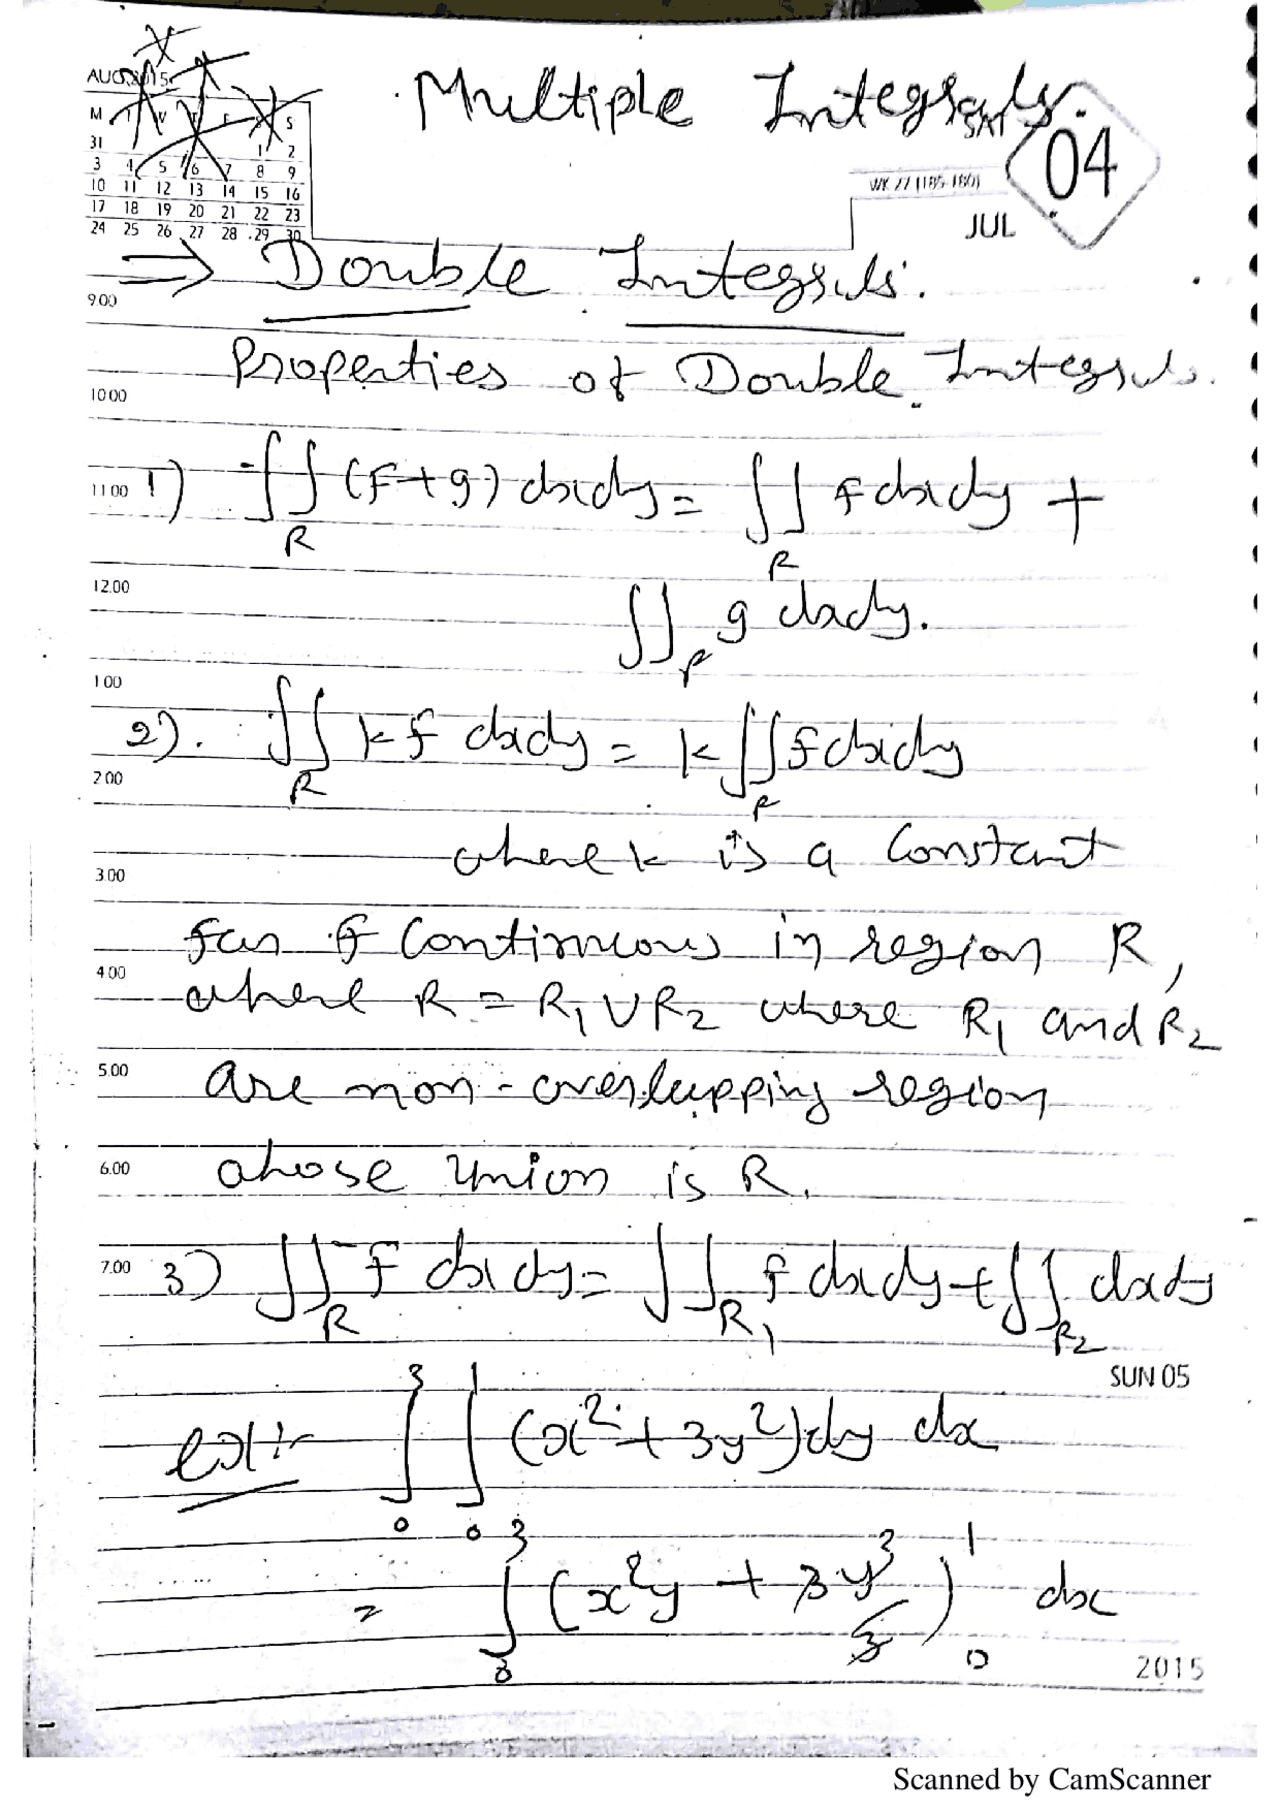 AUG 2015
Multiple Integrals.
SAT
04
M T W T F S S
31 1 2
3 4 5 6 7 8 9
10 11 12 13 14 15 16
17 18 19 20 21 22 23
24 25 26 27 28 29 30
WK 27 (185-180)
JUL
⇒ Double Integrals.
9.00
Properties of Double Integrals.
10.00
11.00 1) ∫∫_R (f+g) dxdy = ∫∫_R f dxdy +
12.00
∫∫_R g dxdy.
1.00
2). ∫∫_R kf dxdy = k∫∫_R f dxdy
2.00
where k is a Constant
3.00
fun f Continuous in region R,
4.00
where R = R₁ ∪ R₂ where R₁ and R₂
5.00 are non-overlapping region
6.00 whose union is R.
7.00 3) ∫∫_R f dxdy = ∫∫_R₁ f dxdy + ∫∫_R₂ dxdy
SUN 05
ex:- ∫₀³ ∫₀¹ (x² + 3y²) dy dx
= ∫₀³ (x²y + 3y³/3)₀¹ dx
2015
Scanned by CamScanner